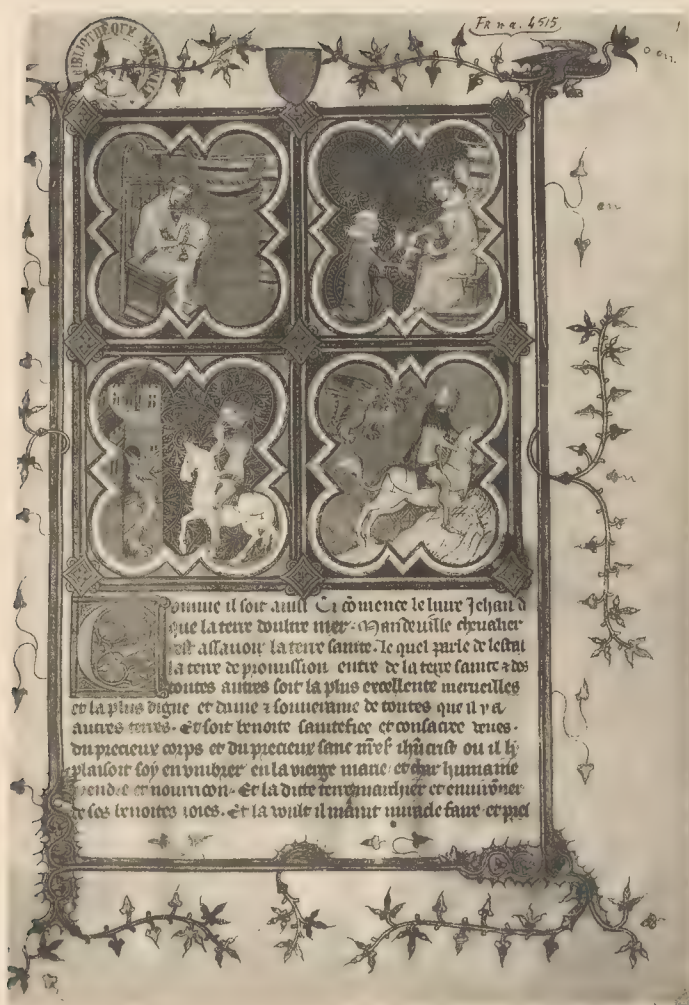 BIBLIOTHÈQUE NATIONALE
Fr n a. 4515.
1
Comme il soit ainsi Ci cōmence le liure Jehan d
que la terre doultre mer. Mandeuille cheualier
est assauoir la terre sainte. le quel parle de lestat
la terre de promission entre de la terre sainte ⁊ des
toutes autres soit la plus excellente merueilles
et la plus digne et dame ⁊ souueraine de toutes que il y a
autres terres. Et soit benoite saintefiee et consacree veues.
du precieux corps et du precieux sanc nr̄e ih̄ucrist ou il li
plaisoit soy enumbrer en la vierge marie et char humaine
prendre et nourricon. Et la dicte terre marchier et enuirōner
de ses benoites ioies. Et la voult il maint miracle faire et pree